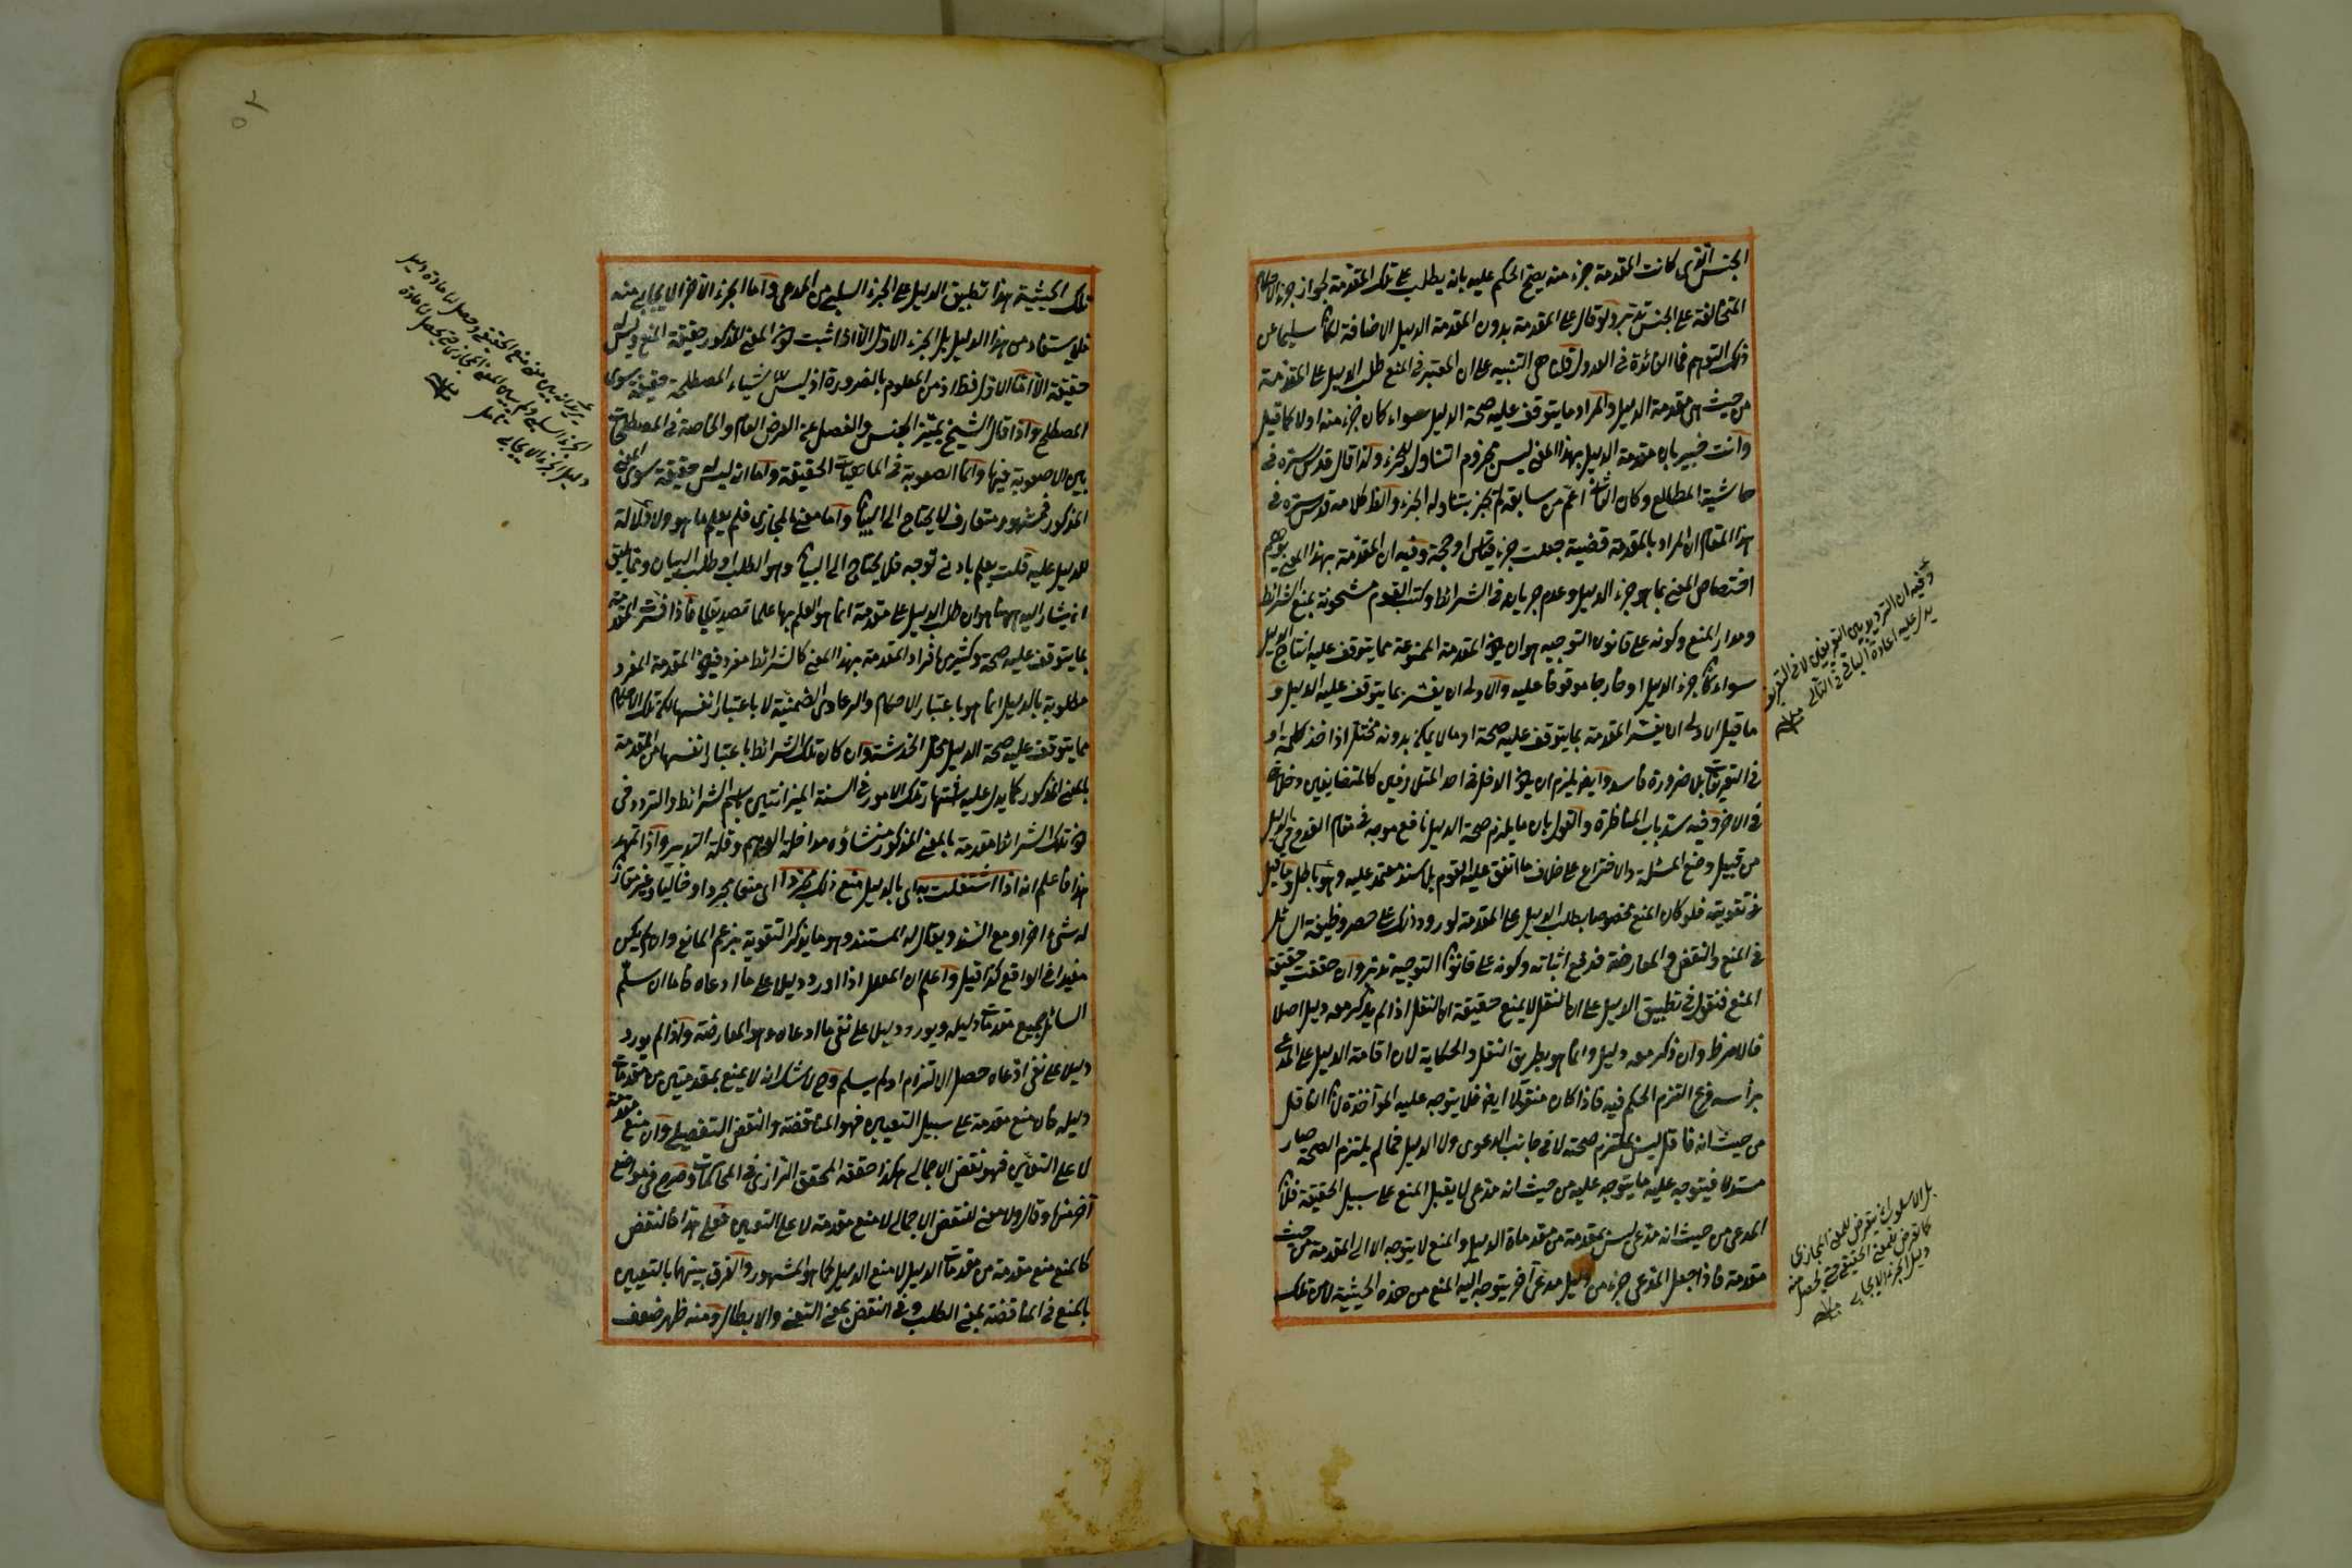 الجنس الذى كانت المقدمة جزء منه يصح الحكم عليه بانه يطلب على تلك المقدمة لجواز جزء الاحكام
المتخالفة على الجنس تدبر ولو قال على المقدمة بدون المقدمة الدليل الاضافة لكان سليما عن
ذلك التوهم فما الفائدة فى العدول قلنا هى التنبيه على ان المعتبر فى المنع طلب الدليل على المقدمة
من حيث هى مقدمة الدليل والمراد ما يتوقف عليه صحة الدليل سواء كان جزء منه اولا كما قيل
وانت خبير بان مقدمة الدليل بهذا المعنى ليس بمجزوم التناول للجزء ولذا قال قدس سره فى
حاشية المطالع وكان الثانى اعم من سابقه لم يجز بتناوله الجزء والظ كلامه قدس سره فى
هذا المقام ان المراد بالمقدمة قضية جعلت جزء قياس او حجة وفيه ان المقدمة بهذا المعنى يوهم
اختصاص المعنى بما هو جزء الدليل وعدم جريانه فى الشرائط وكتب القوم مشحونة بمنع الشرائط
ومدار المنع وكونه على قانون التوجيه هو ان يكون المقدمة الممنوعة مما يتوقف عليه انتاج الدليل
سواء كان جزء الدليل او خارجا موقوفا عليه والاولى ان يفسر بما يتوقف عليه الدليل و
ما قيل الاولى ان يفسر المقدمة بما يتوقف عليه صحة او ما لا يمكن بدونه مختل اذ اخذ كلمة او
فى التعريفات بلا ضرورة فاسد وايضا يلزم ان يكون الدخل فى احد المتلازمين كالمتضايفين دخلا
فى الاخر وفيه سد باب المناظرة والقول بان ما يلزم صحة الدليل نافع موجه فى مقام القدح فى الدليل
من قبيل وضع المسئلة والاختراع على خلاف ما اتفق عليه القوم بلا سند معتمد عليه وهو باطل وما قيل
فى تقويته فلو كان المنع مخصوصا بطلب الدليل على المقدمة لورود ذلك على حصر وظيفة السائل
فى المنع والنقض والمعارضة فدفع اثباته وكونه على قانون التوجيه تدبر وان حققت حقيقة
المنع فنقول فى تطبيق الدليل على ان النقل لا يمنع حقيقة ان النقل اذا لم يذكر معه دليل اصلا
فالامر ظ وان ذكر معه دليل وانما هو بطريق النقل والحكاية لان اقامة الدليل على المدعى
برأسه فرع التزم الحكم فيه فاذا كان منقولا ايضا فلا يتوجه عليه المؤاخذة لان الناقل
من حيث انه ناقل ليس يلتزم صحته لا فى جانب الدعوى ولا الدليل فما لم يلتزم الصحة صار
مستدلا فيتوجه عليه ما يتوجه عليه من حيث انه مدعى لا يقبل المنع على سبيل الحقيقة فلان
المدعى من حيث انه مدعى ليس بمقدمة من مقدماة الدليل والمنع لا يتوجه الا الى المقدمة من حيث
مقدمة فاذا جعل المدعى جزء من دليل مدعى آخر يتوجه اليه المنع من هذه الحيثية لا من تلك
وفيه ان الترديد بين التعريفين لا فى التعريف
يدل عليه اعادة الباقى فى الثانى منه
بل الاسلوب ان يتعرض للمعنى المجازى
كما تعرض للمعنى الحقيقى حتى يحصل منه
دليل الجزء الايجابى منه
تلك الحيثية هذا تطبيق الدليل على الجزء السلبى من المدعى واما الجزء الآخر الايجابى منه
فلا يستفاد من هذا الدليل بل الجزء الاول الا اذا ثبت كون المعنى المذكور حقيقة المنع وليس له
حقيقة الا اما الاول فظ اذ من المعلوم بالضرورة اذ ليس للاشياء المصطلحة حقيقة سوى
المصطلح واذا قال الشيخ تميز الجنس والفصل عن العرض العام والخاصة فى المصطلحات
بين لا صعوبة فيها وانما الصعوبة فى الماهيات الحقيقة واما انه ليس له حقيقة سوى المعنى
المذكور فمشهور متعارف لا يحتاج الى البيان واما معنى المجازى فلم يعلم ما هو ولا دلالة
للدليل عليه قلت يعلم بادنى توجه فلا يحتاج الى البيان وهو الطلب او طلب البيان ومما يليق
ان يشار اليه ههنا هو ان طلب الدليل على مقدمة انما هو العلم بها علما تصديقيا فاذا فسرت المقدمة
بما يتوقف عليه صحة وكثير من افراد المقدمة بهذا المعنى كالشرائط مفرد فيكون المقدمة المفرد
مطلوبة بالدليل انما هو باعتبار الاحكام والدعاوى الضمنية لا باعتبار انفسها لكن تلك الاحكام
مما يتوقف عليه صحة الدليل محل الخدشة وان كان تلك الشرائط باعتبار انفسها من المقدمة
بالمعنى المذكور كما يدل عليه اشتهار تلك الامور فى السنة الميزانيين باسم الشرائط والتردد فى
كون تلك الشرائط مقدمة بالمعنى المذكور منشاؤه مداخلة الوهم وقلة التدبر واذا تمهد
هذا فاعلم انه اذا اشتغلت به اى بالدليل منع ذلك مجردا اى منعا مجردا او خاليا وغير مقارن
له شىء آخر او مع السند ويقال له المستند وهو ما يذكر لتقوية بزعم المانع وان لم يكن
مفيدا فى الواقع كذا قيل واعلم ان المعلل اذا اورد دليلا على ما ادعاه فاما ان سلم
السائل جميع مقدمات دليله ويورد دليلا على نفى ما ادعاه وهو المعارضة واذا لم يورد
دليلا على نفى ادعاه حصل الالتزام او لم يسلم وح لا شك انه لا يمنع بمقدمتين من مقدمات
دليله فان منع مقدمة على سبيل التعيين فهو المناقضة والنقض التفصيلى وان منع مقدمة
لا على التعيين فهو نقض الاجمالى هكذا حققه المحقق الرازى فى المحاكمات وصرح فى مواضع
آخر منها وقال ولا معنى للنقض الاجمالى الا منع مقدمة لا على التعيين فعلى هذا فالنقض
كالمنع منع مقدمة من مقدمات الدليل لا منع الدليل كما هو المشهور والفرق بينهما بالتعيين
بالمنع فى المناقضة بمعنى الطلب وفى النقض بمعنى النفى والابطال ومنه ظهر ضعف
الجزء السلبى ولم يبين المعنى المجازى حتى يحصل لنا مادة
دليل الجزء الايجابى تأمل
منه